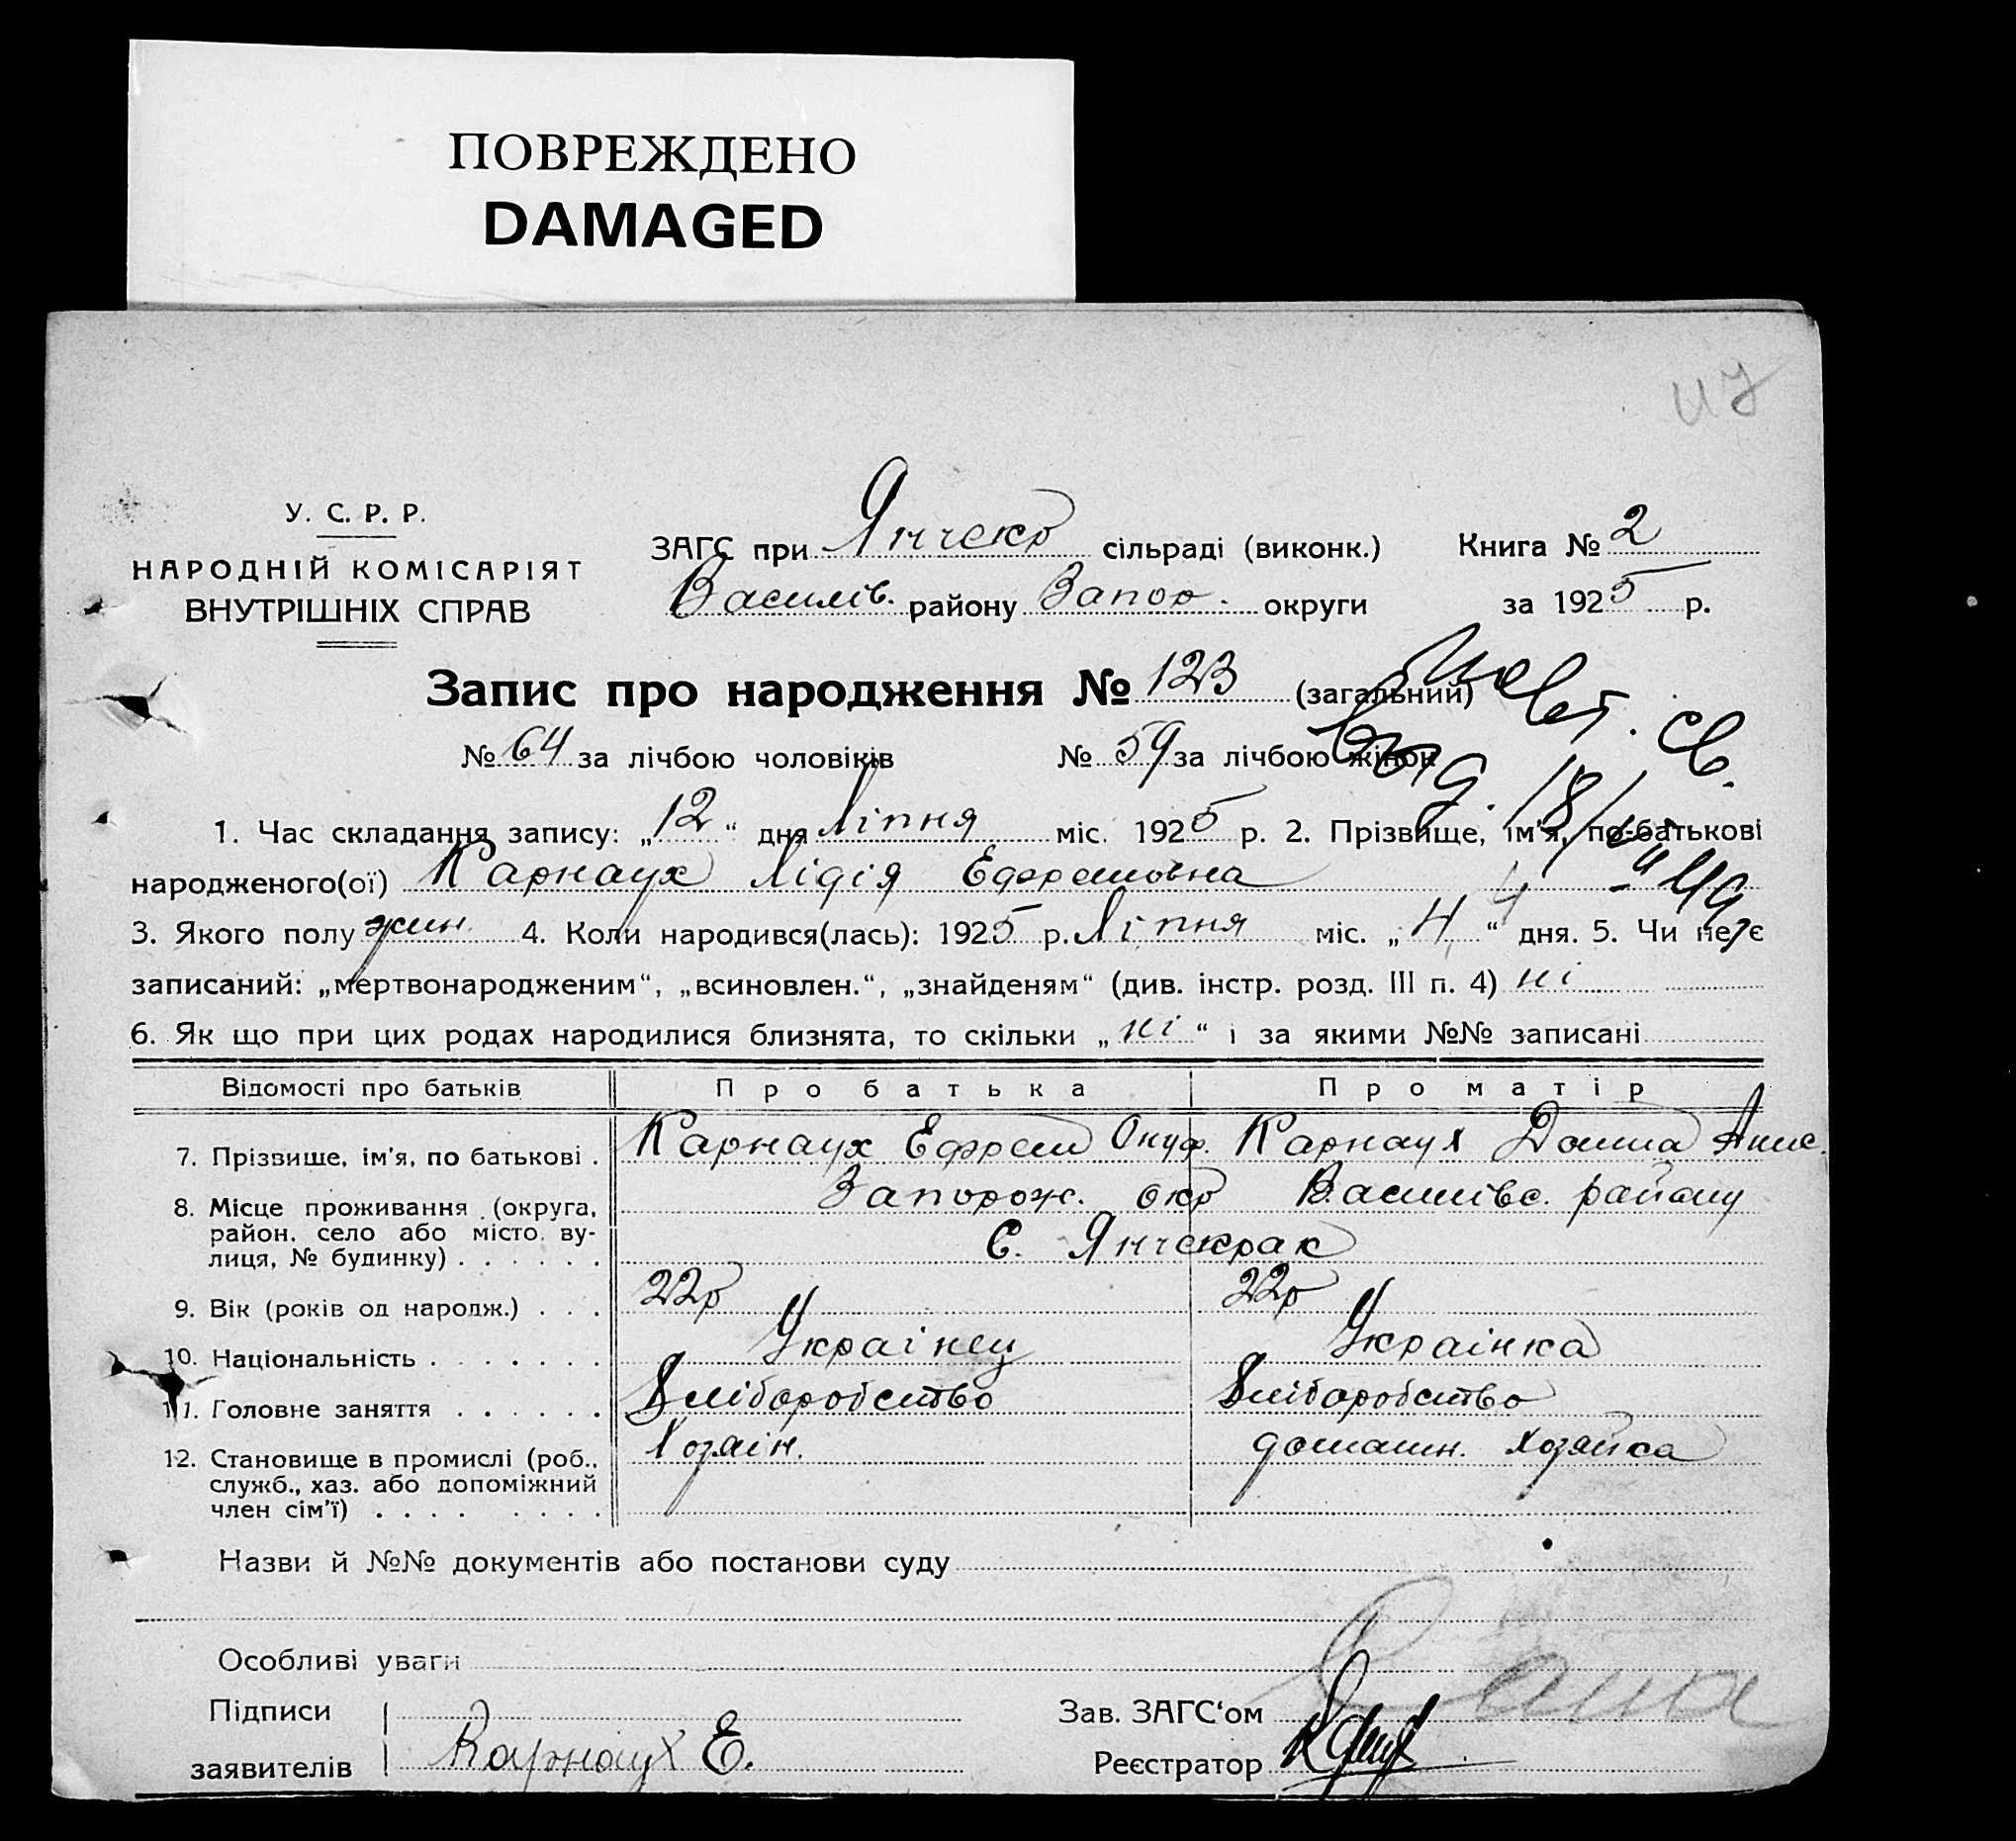 ПОВРЕЖДЕНО
DAMAGED
У. С. Р. Р.
НАРОДНІЙ КОМІСАРІЯТ
ВНУТРІШНІХ СПРАВ
ЗАГС при Янчекр сільраді (виконк.) Книга № 2
Василів. району Запор. округи за 1925 р.
Запис про народження № 123 (загальний)
№ 64 за лічбою чоловіків № 59 за лічбою жінок
Повт. св.
выд. 18/
1. Час складання запису: „12“ дня Ліпня міс. 1925 р. 2. Прізвище, ім'я, по-батькові
народженого(ої) Карнаух Лідія Ефремовна
3. Якого полу жин. 4. Коли народився(лась): 1925 р. Ліпня міс. „4“ дня. 5. Чи не є
записаний: „мертвонародженим“, „всиновлен.“, „знайденям“ (див. інстр. розд. III п. 4) ні
6. Як що при цих родах народилися близнята, то скільки „ні“ і за якими №№ записані
Відомості про батьків Про батька Про матір
7. Прізвище, ім'я, по батькові . Карнаух Ефрем Онуф. Карнаух Домна Анис.
8. Місце проживання (округа, район, село або місто, вулиця, № будинку) . . . . . . Запорож. окр Василівс. району
С. Янчекрак
9. Вік (років од народж.) . . . 22р 22р
10. Національність . . . . . . . Украінец Украінка
11. Головне заняття . . . . . . Хліборобство Хліборобство
12. Становище в промислі (роб., служб., хаз. або допоміжний член сім'ї) . . . . . . . . Хозяін. домашн. хозяйка
Назви й №№ документів або постанови суду
Особливі уваги
Підписи
заявителів Карнаух Е.
Зав. ЗАГС'ом
Реєстратор